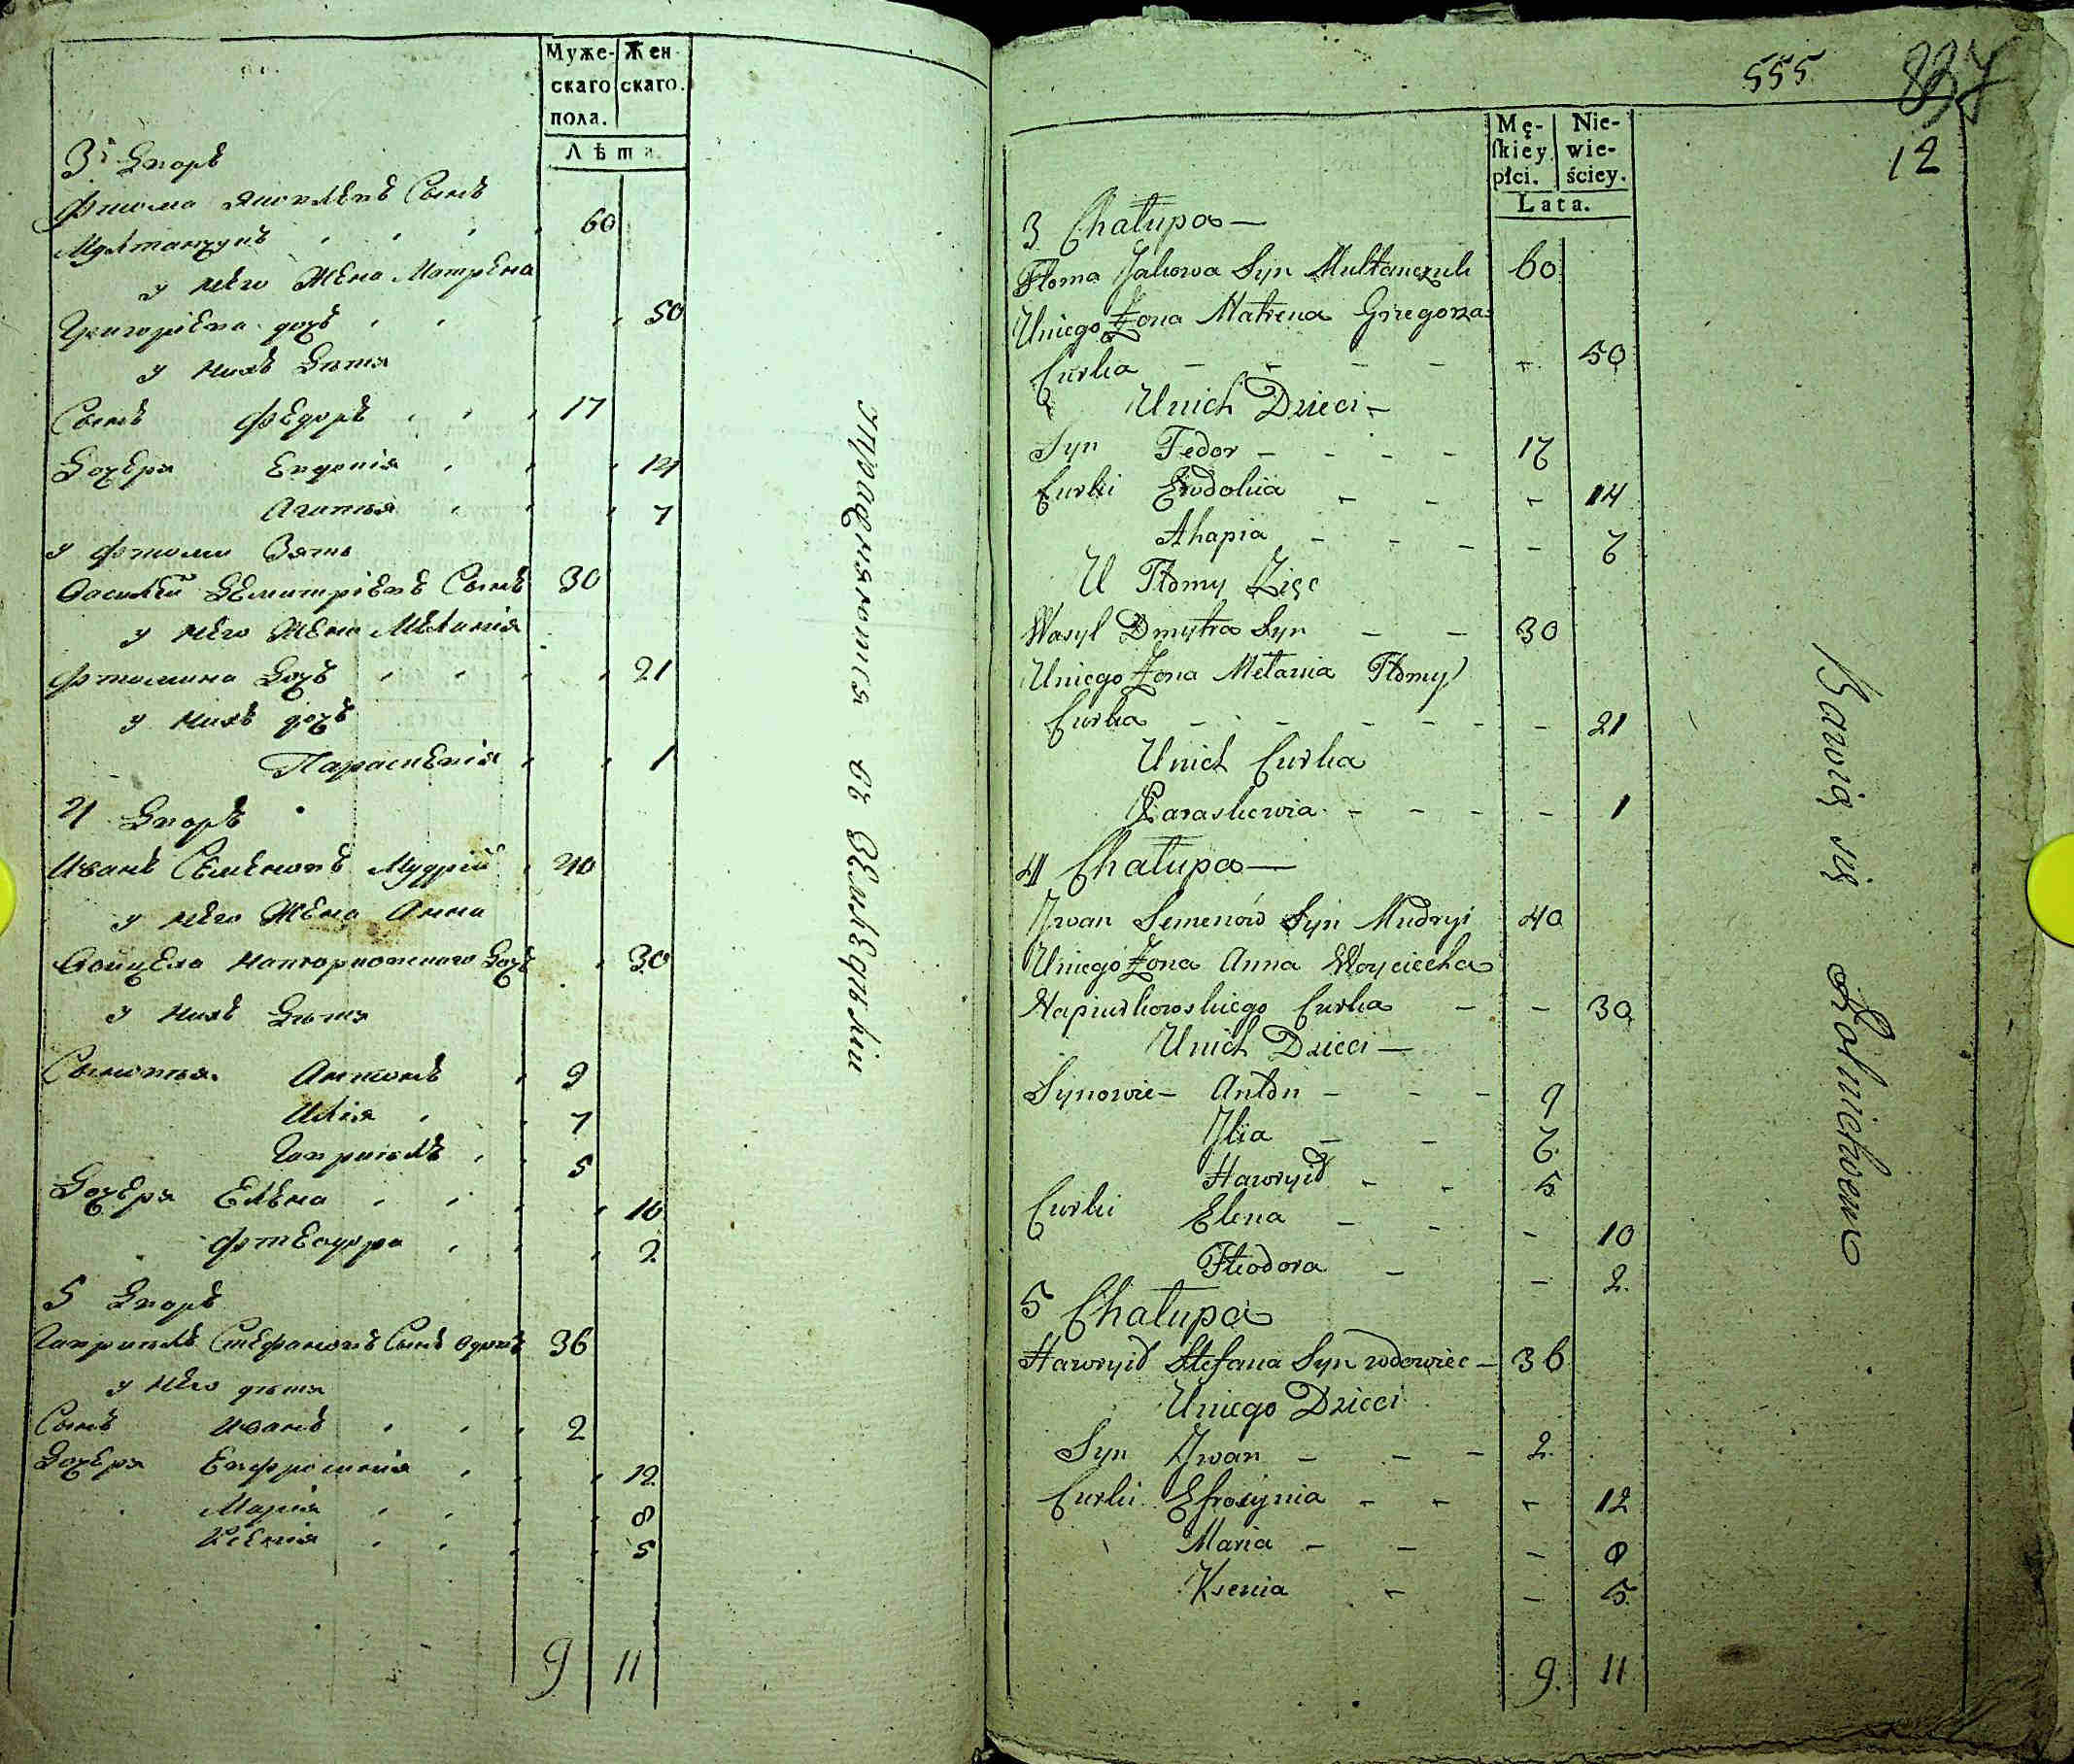 Муже-
скаго
пола.
Жен
скаго.
Лѣта.
3й Дворъ
Фтома Яковлевъ Сынъ
Мултанчукъ 60
у него Жена Матрена
Григоріева дочь 50
у нихъ Дѣти
Сынъ Федоръ 17
Дочери Евдокія 14
Агапія 7
у Фтомы Зять
Василій Демитріевъ Сынъ 30
у него Жена Меланія
Фтомина Дочь 21
у нихъ дочь
Параскевія 1
4 Дворъ
Иванъ Семеновъ Мудрій 40
у него Жена Анна
Войцеха Напюрковского Дочь 30
у нихъ Дѣти
Сыновья Антонъ 9
Илія 7
Гаврило 5
Дочери Елена 10
Фтеодора 2
5 Дворъ
Гаврило Стефановъ Сынъ вдовъ 36
у него дѣти
Сынъ Иванъ 2
Дочери Евфросинія 12
Марія 8
Ксенія 5
9 11
Упражняются въ Земледеліи
555 837
12
Mę-
skiey
płci.
Nie-
wie-
ściey.
Lata.
3 Chałupa —
Ftoma Jakowa Syn Multanczuk 60
Uniego Żona Matrena Grzegorza
Curka 50
Unich Dzieci —
Syn Fedor 17
Curki Ewdokia 14
Ahapia 7
U Ftomy Zięc
Wasyl Dmytra Syn 30
Uniego Żona Mełania Ftomy
Curka 21
Unich Curka
Paraskewia 1
4 Chałupa —
Jwan Semenów Syn Mudryi 40
Uniego Żona Anna Woyciecha
Napiurkowskiego Curka 30
Unich Dzieci —
Synowie — Anton 9
Jlia 7
Hawryił 5
Curki Elena 10
Fteodora 2
5 Chałupa
Hawryił Stefana Syn wdowiec 36
Uniego Dzieci
Syn Jwan 2
Curki Efrosynia 12
Maria 8
Ksenia 5
9. 11
Bawią się Rolnictwem